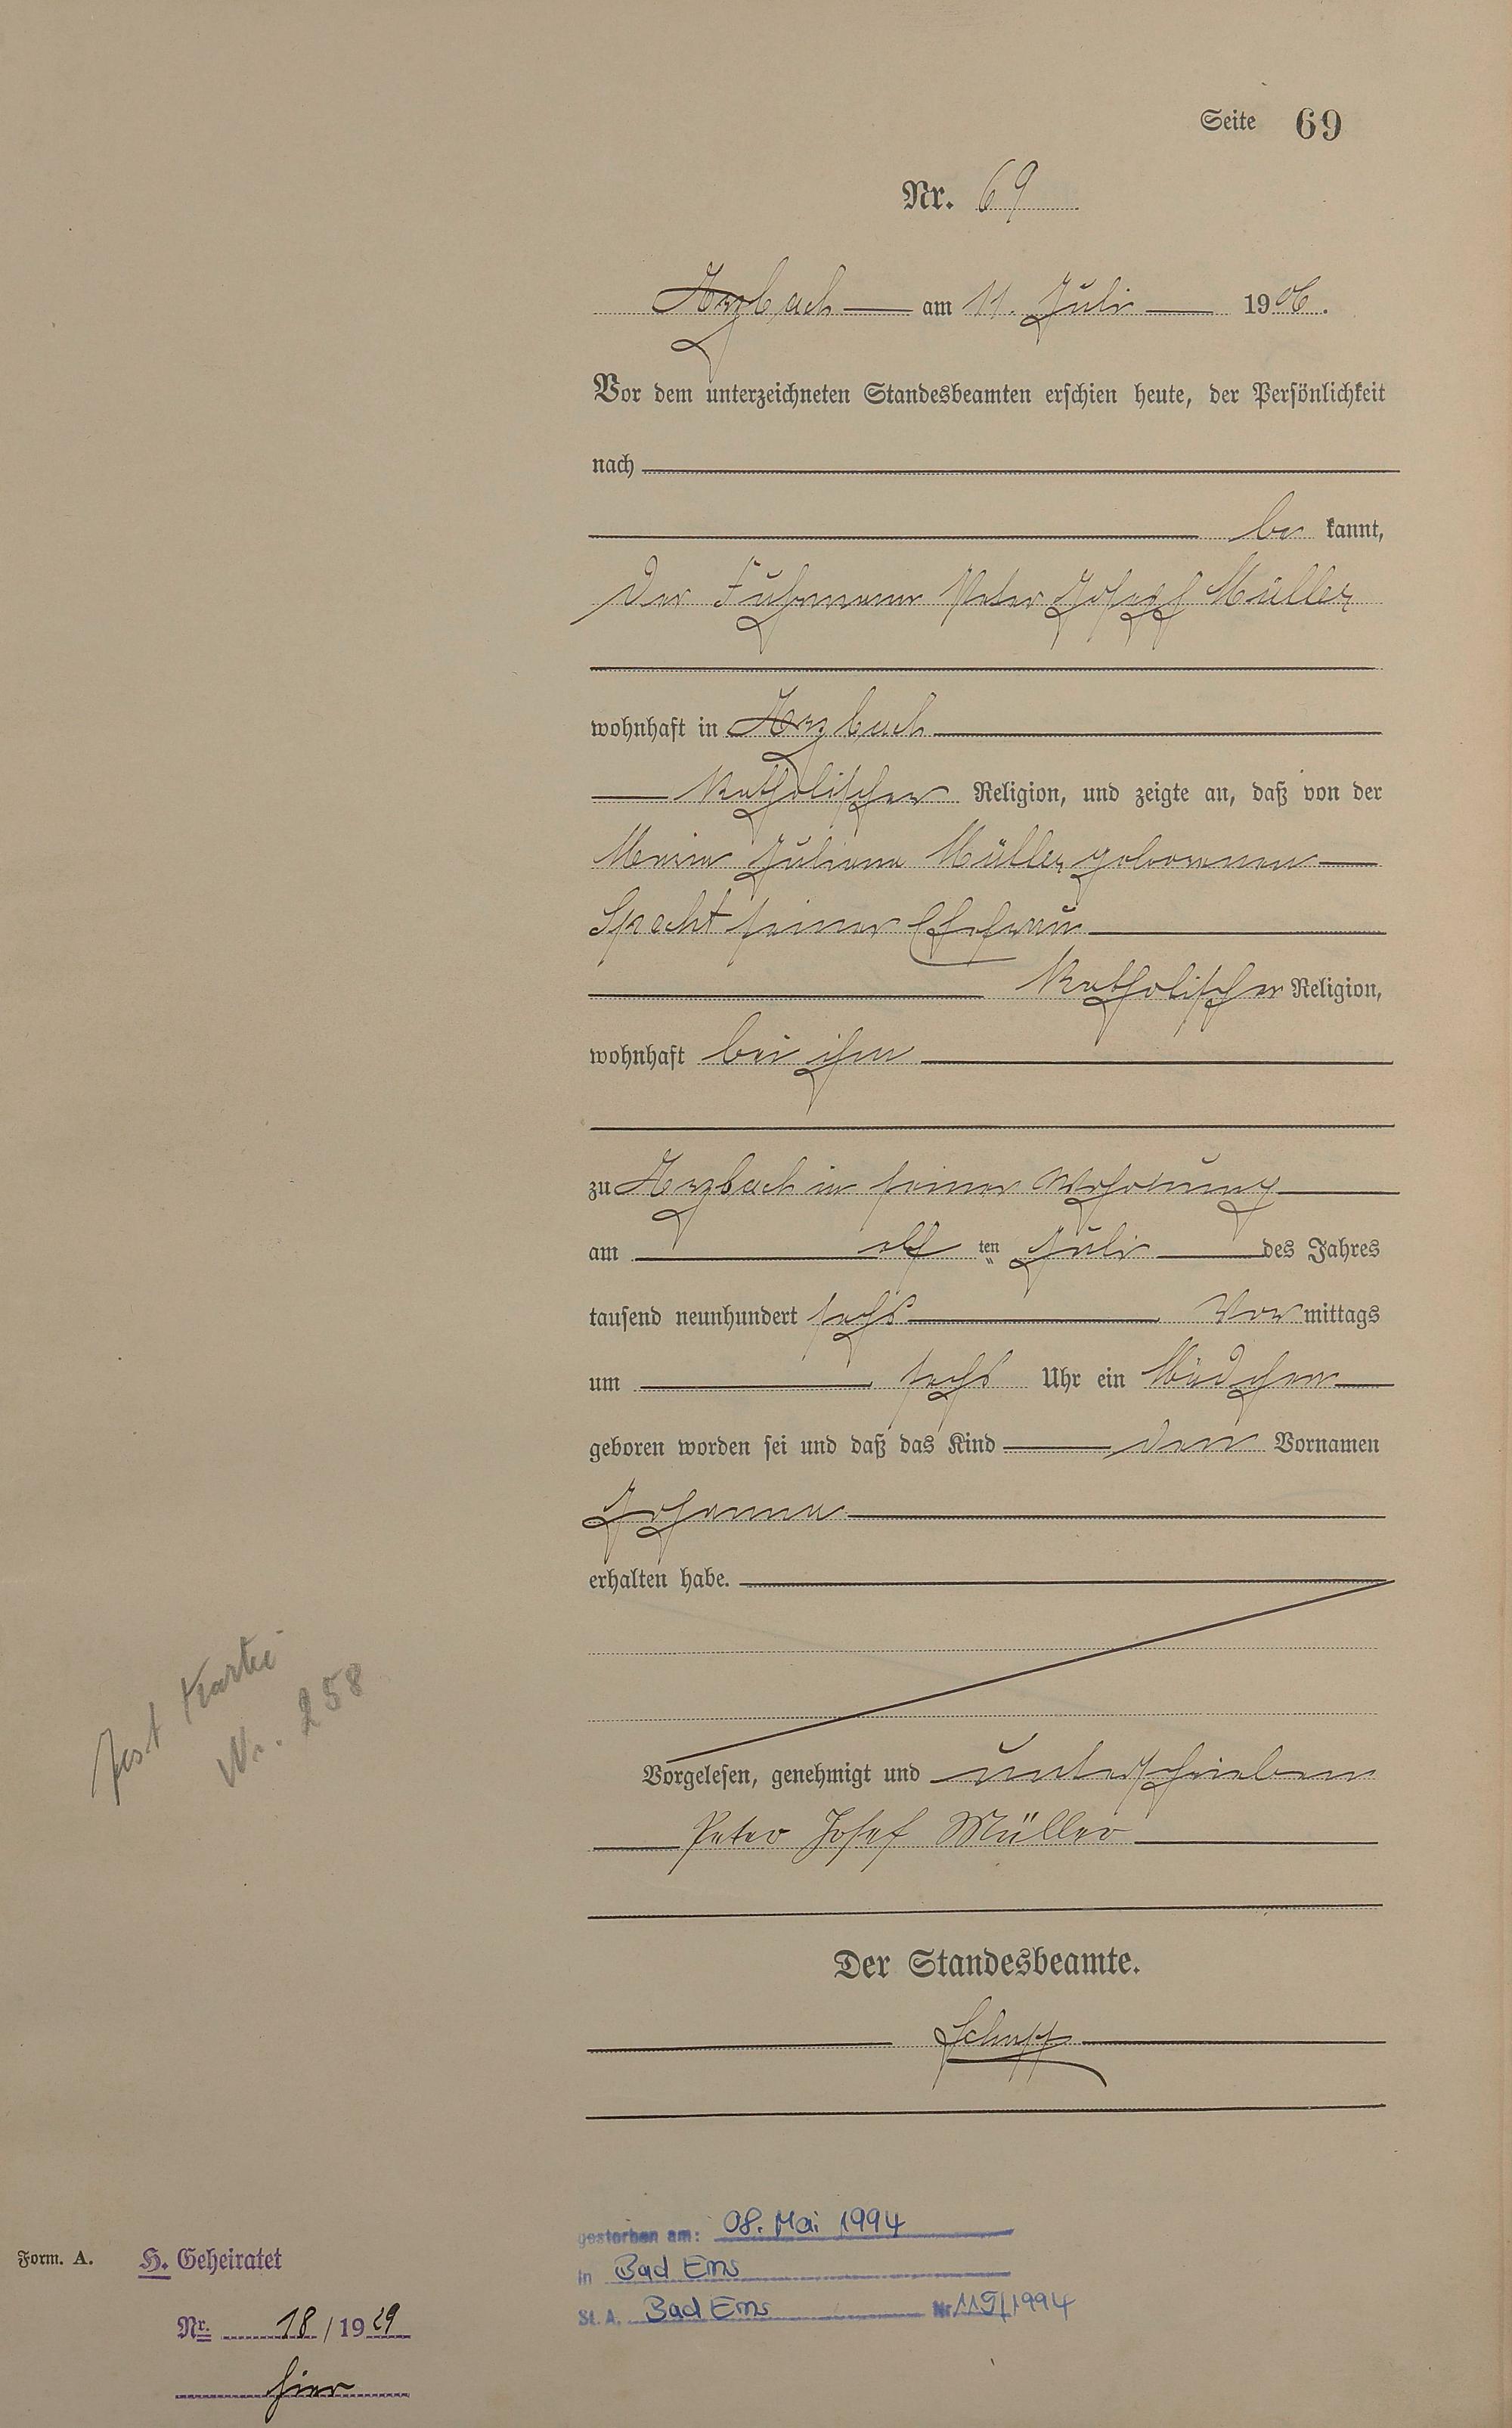 Seite 69
Nr. 69
Arzbach am 11. Juli 1906.
Vor dem unterzeichneten Standesbeamten erschien heute, der Persönlichkeit
nach
be kannt,
der Fuhrmann Peter Josef Müller
wohnhaft in Arzbach
katholischer Religion, und zeigte an, daß von der
Maria Juliana Müller geborenen
Specht seiner Ehefrau
katholischer Religion,
wohnhaft bei ihm
zu Arzbach in seiner Wohnung
am elf ten Juli des Jahres
tausend neunhundert sechs Vor mittags
um sechs Uhr ein Mädchen
geboren worden sei und daß das Kind den Vornamen
Johanna
erhalten habe.
Kartei
Nr. 258
Vorgelesen, genehmigt und unterschrieben
Peter Josef Müller
Der Standesbeamte.
Schupp
gestorben am: 08. Mai 1994
in Bad Ems
St. A. Bad Ems Nr. 119/1994
Form. A. H. Geheiratet
Nr. 18/1929
hier